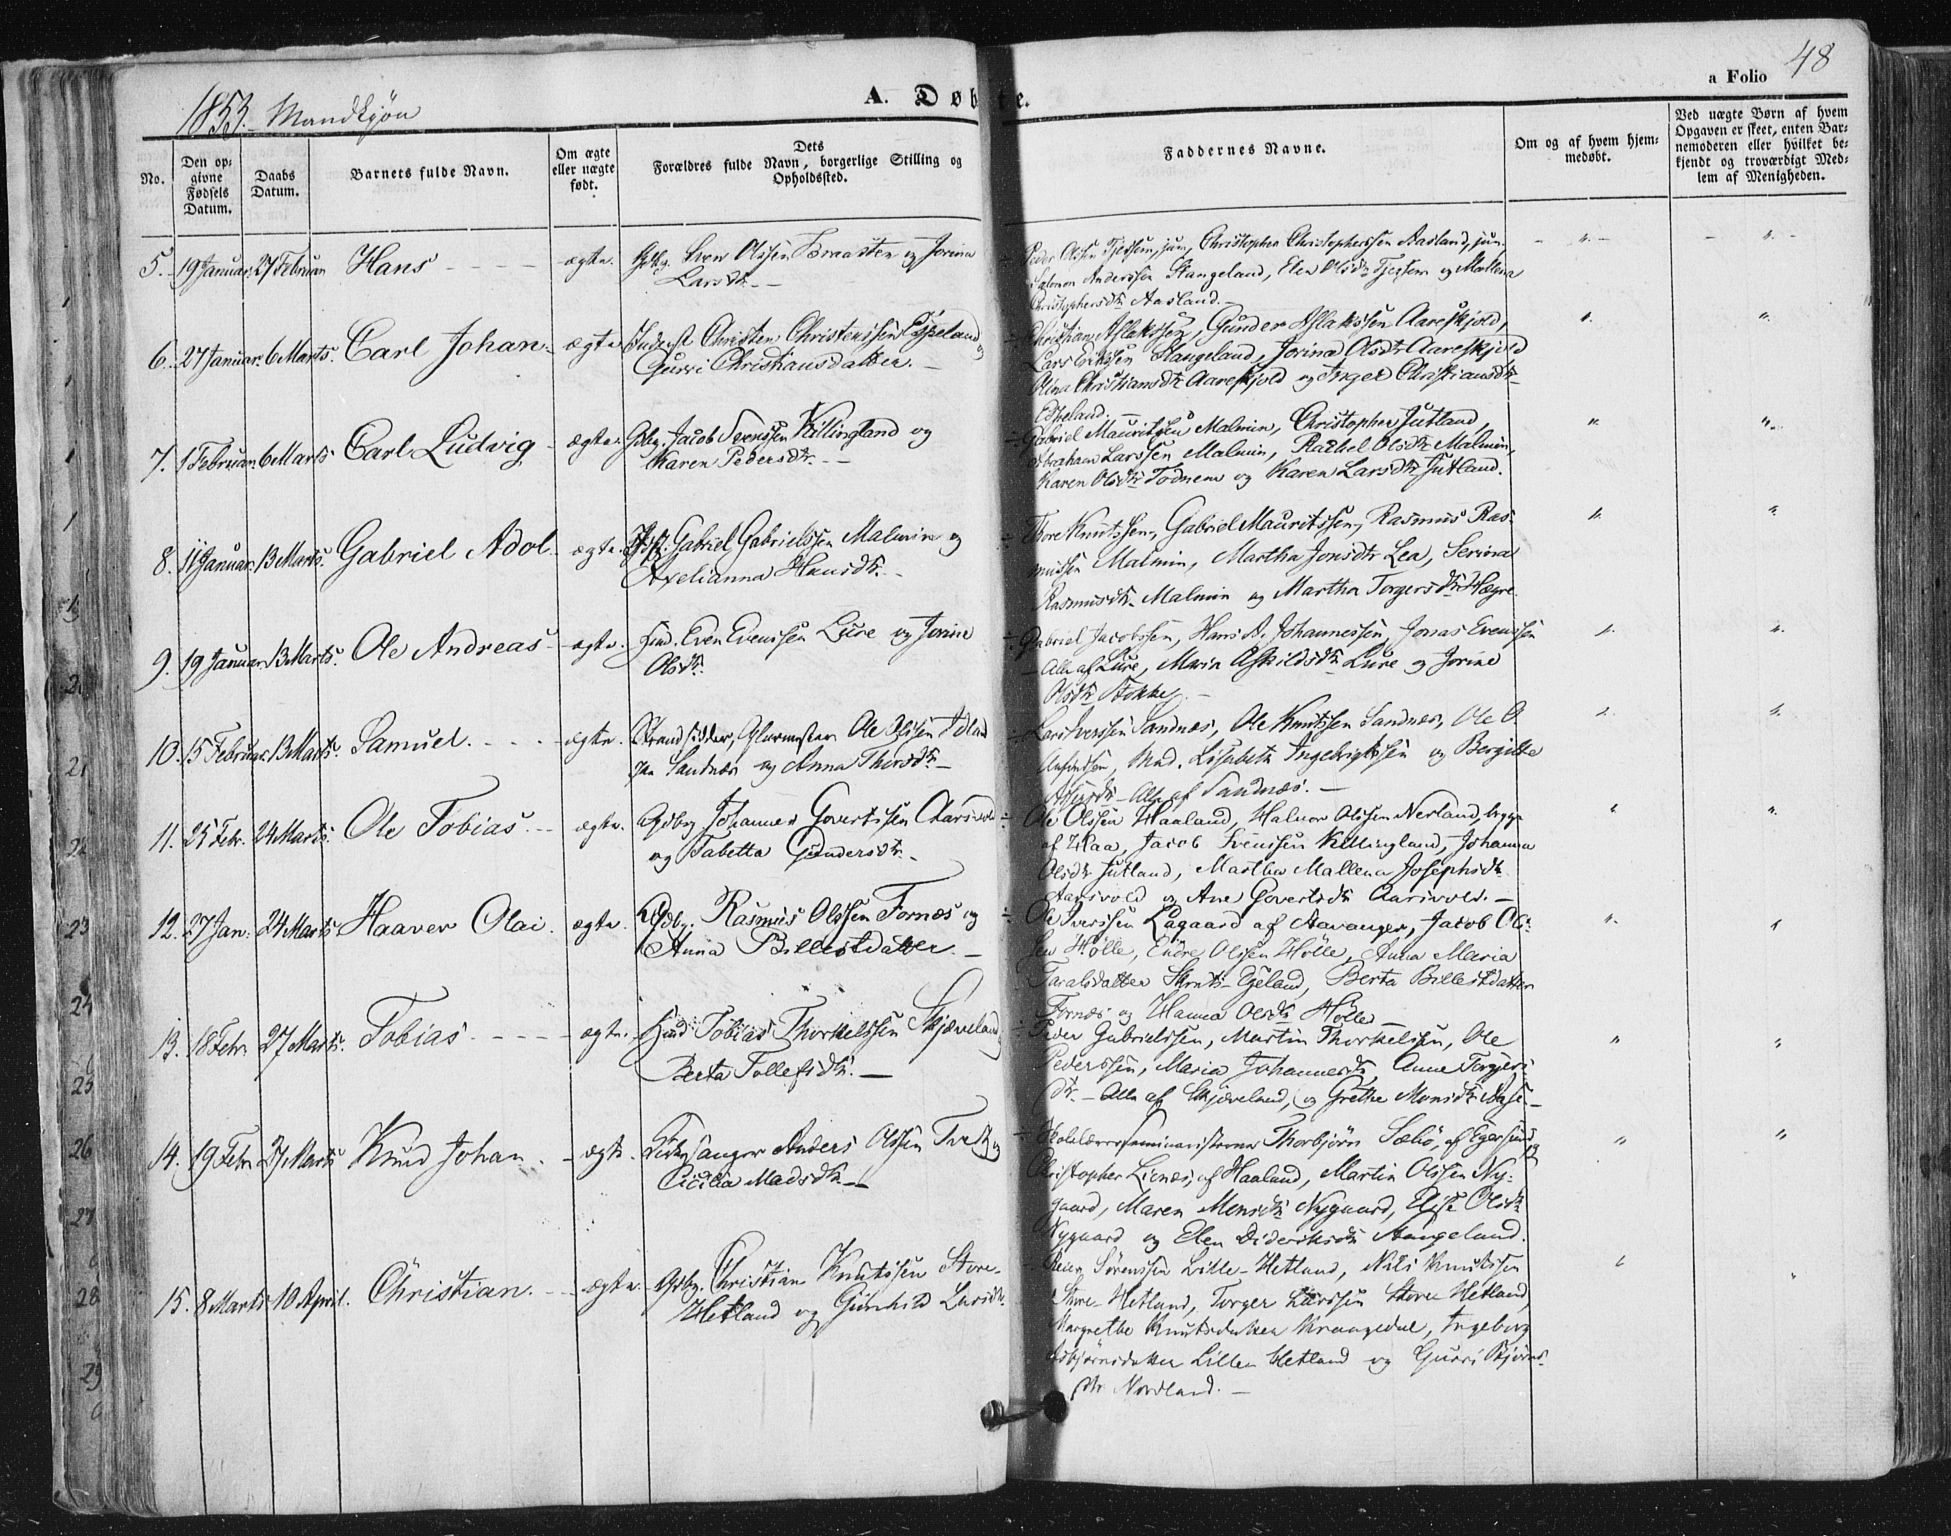 48
a Folio
1853. Mandkjøn
A. Døbte.
No.
Den opgivne Fødsels Datum.
Daabs Datum.
Barnets fulde Navn.
Om ægte eller nægte født.
Dets Forældres fulde Navn, borgerlige Stilling og Opholdssted.
Faddernes Navne.
Om og af hvem hjemmedøbt.
Ved nægte Børn af hvem Opgaven er skeet, enten Barnemoderen eller hvilket bekjendt og troværdigt Medlem af Menigheden.
5. 19 Januar. 27 Februar Hans ægte. Gdbg. Sven Olssen Braasten og Jorina
Larsdtr.
Peder Olssen Tjessem, jun, Christopher Christopherssen Aasland, jun.
Salomon Anderssen Stangeland, Elen Olsdtr Tjessem og Mallena
Christophersdtr Aasland.
6. 27 Januar. 6 Marts. Carl Johan ægte Inderst Christen Christenssen Espeland og
Gurri Christiansdatter.
Christian Aslakssøn, Gunder Aslakssen Aareskjold,
Lars Erikssen Stangeland, Jorina Olsdtr Aareskjold
Olina Christiansdtr Aareskjold og Inger Christiansdtr
Espeland.
7. 1 Februar 6 Marts Carl Ludvig ægte. Gdbg. Jacob Svenssen Killingland og
Karen Pedersdtr.
Gabriel Mauritzsen Malmin, Christopher Jutland,
Abraham Larssen Malmin, Rachel Olsdtr Malmin,
Karen Olsdtr Todnem og Karen Larsdtr Jutland.
8. 11 Januar. 13 Marts. Gabriel Adol ægte. Gabriel Gabrielssen Malmin og
Axelianna Hansdtr.
Thore Knutssen, Gabriel Mauritssen, Rasmus Ras-
mussen Malmin, Martha Jonsdtr Lea, Serina
Rasmusdtr. Malmin og Martha Torgersdtr Høgre.
9. 19 Januar 13 Marts. Ole Andreas ægte. Huusm. Even Evenssen Lure og Jorine
Olsdtr.
Gabriel Jacobssen, Hans A. Johannessen, Jonas Evenssen
Alle af Lure, Maria Askildsdtr Lure og Jorine
Olsdtr Stokke.
10. 15 Februar. 13 Marts. Samuel. ægte. Strandsidder, Glarmester Ole Olssen Idland
paa Sandnæs og Anna Thorsdtr
Lars Iverssen Sandnæs, Ole Knutssen Sandnæs, Ole O.
Anfindsen, Mad. Lisabeth Ingebrigtssen og Bergitte
Alle af Sandnæs.
11. 25 Febr. 24 Marts. Ole Tobias. ægte. Gdbg Johannes Govertssen Aarsvold
og Tabetta Gundersdtr.
Ole Olssen Haaland, Halvor Olssen Nerland, begge
af Haa, Jacob Svenssen Killingland, Johanna
Olsdtr Jutland, Martha Mallena Josephsdtr
Aarsvold og Ane Govertsdtr Aarsvold.
12. 27 Jan. 24 Marts Haaver Olai. ægte. Gdbg. Rasmus Olssen Fornæs og
Anna Billestdatter.
Ole Iverssen Lagaard af Stavanger, Jacob Ols-
sen Hølle, Endre Olssen Hølle, Anna Maria
Taralsdatter Egeland, Berta Billestdatter
Fornæs og Hanna Olsdtr Hølle.
13. 18 Febr. 27 Marts. Tobias ægte. Tobias Thorkelssen Skjæveland
Berta Tollefsdtr.
Peder Gabrielssen, Martin Thorkelsen, Ole
Pederssen, Maria Johannesdtr, Anne Torgers-
dtr. Alle af Skjæveland, og Grethe Monsdtr
14. 19 Febr. 27 Marts Knud Johan. ægte. Kirkesanger Anders Olssen Tvedt og
Cicilia Madsdtr.
Skolelærer Seminaristerne Thorbjørn Sæbø, af Egersund og
Christopher Lienæs, af Haaland, Martin Olssen Ny-
gaard, Maren Monsdtr Nygaard, Elise Olsdtr
Nygaard og Elen Dideriksdtr Stangeland.
15. 8 Marts 10 April. Christian. ægte. Gdbg. Christian Knutssen Store-
Hetland og Gunhild Larsdtr.
Reier Sørenssen Lille-Hetland, Nils Knutssen
Store-Hetland, Torger Larssen Store Hetland,
Margrethe Knutsdatter Kraagedal, Ingeborg
Asbjørnsdatter Lille Hetland og Gurri Bjørns-
dtr. Nordland.